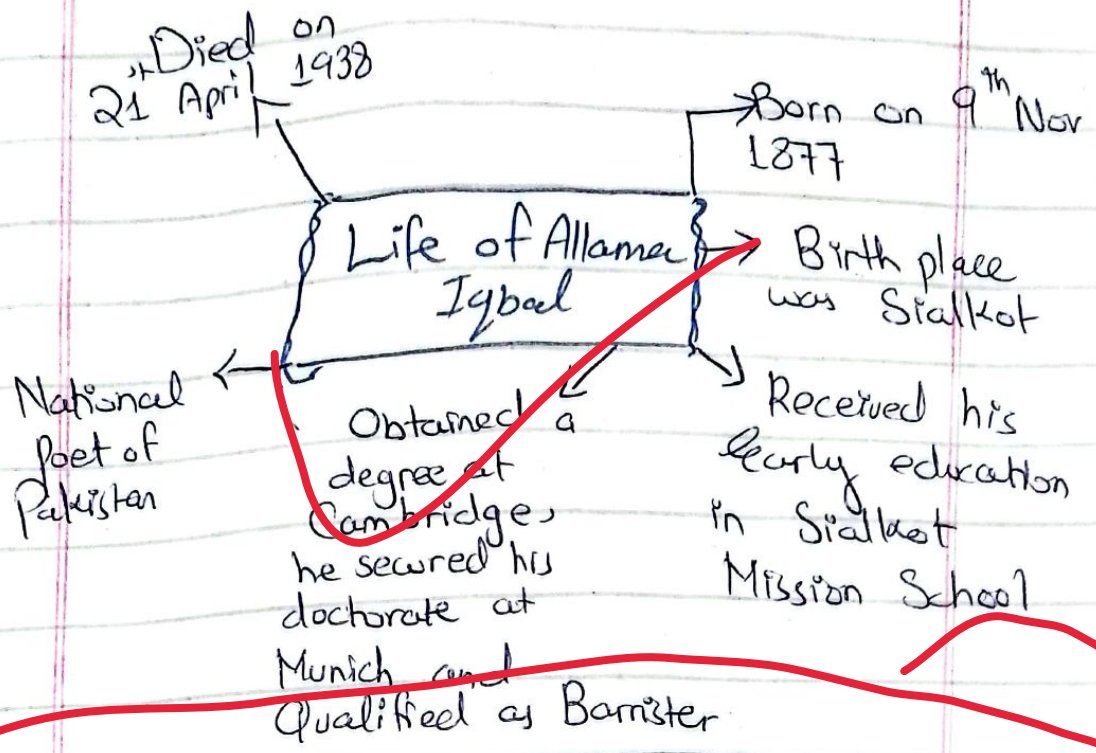 Died on
21 April 1938
Born on 9th Nov
1877
Life of Allama
Iqbal
Birth place
was Sialkot
National
Poet of
Pakistan
Obtained a
degree at
Cambridge,
he secured his
doctorate at
Munich and
Qualified as Barrister
Received his
Early education
in Sialkot
Mission School